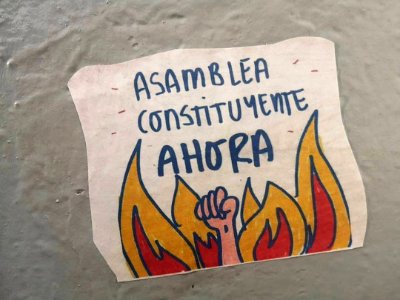 ASAMBLEA
CONSTITUYENTE
AHORA